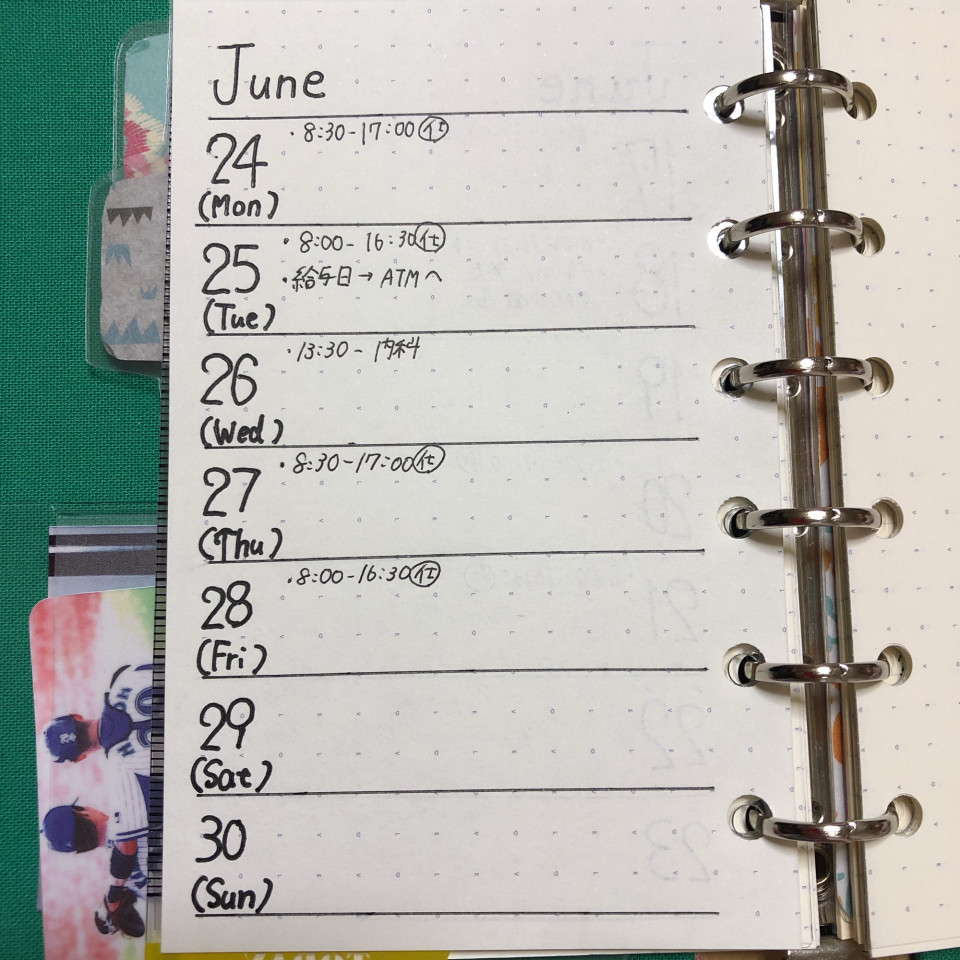 June
24
(Mon)
・8:30-17:00 ㊓
25
(Tue)
・8:00-16:30 ㊓
・給与日→ATMへ
26
(Wed)
・13:30- 内科
27
(Thu)
・8:30-17:00 ㊓
28
(Fri)
・8:00-16:30 ㊓
29
(Sat)
30
(Sun)